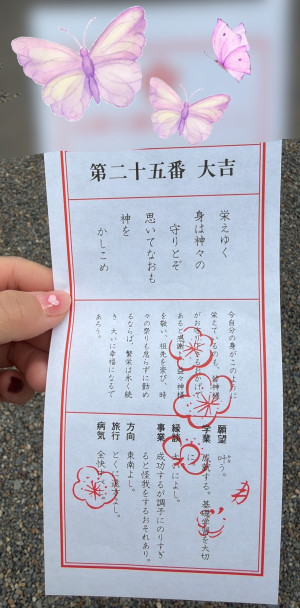 第二十五番 大吉
栄えゆく
身は神々の
守りとぞ
思いてなおも
神を
かしこめ
今自分の身がこのように
栄えているのも、皆神様
がお守り下さるおかげで
あると感謝し、益々神様
を敬い、祖先を崇び、時
々の祭りも怠らずに勤め
るならば、繁栄は永く続
き、大いに幸福になるで
あろう。
願望 叶う。
学業 成就する。基礎学習を大切
に。
縁談 大いによし。
事業 成功するが調子にのりすぎ
ると怪我をするおそれあり。
方向 東南よし。
旅行 とくに遠方よし。
病気 全快